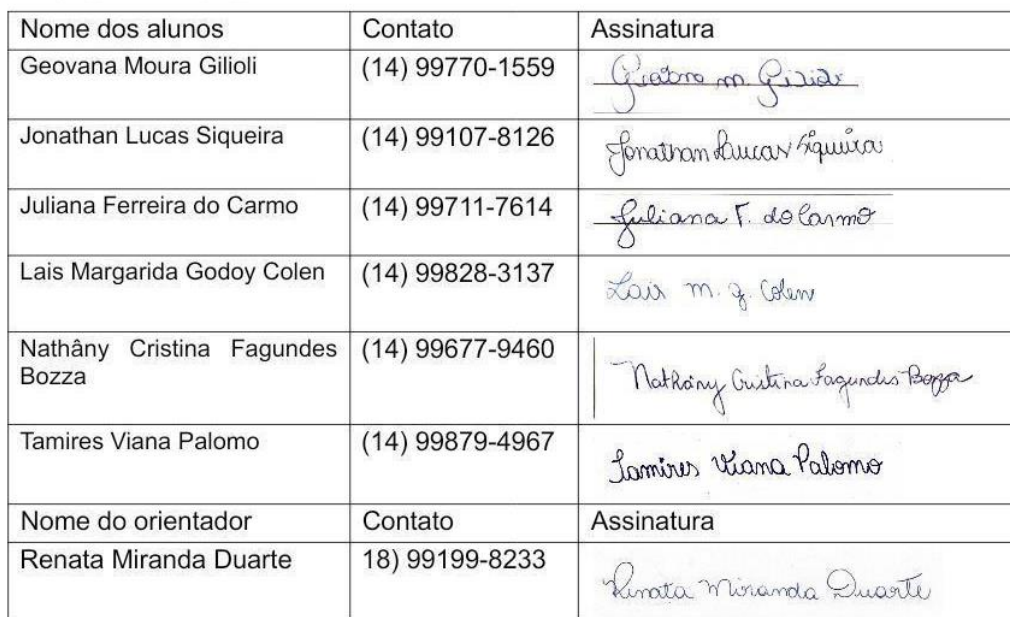 Nome dos alunos Contato Assinatura
Geovana Moura Gilioli (14) 99770-1559
m.
Jonathan Lucas Siqueira (14) 99107-8126 Jonathan Lucas Siqueira
Juliana Ferreira do Carmo (14) 99711-7614 Juliana F. do Carmo
Lais Margarida Godoy Colen (14) 99828-3137 Lais m. g. Colen
Nathâny Cristina Fagundes (14) 99677-9460
Bozza Nathâny Cristina Fagundes Bozza
Tamires Viana Palomo (14) 99879-4967 Tamires Viana Palomo
Nome do orientador Contato Assinatura
Renata Miranda Duarte 18) 99199-8233 Renata Miranda Duarte